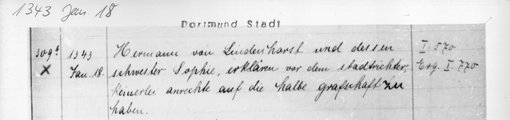 1343 Jan 18
Dortmund Stadt
1343 Hermann von Lindenhorst und dessen I. 570
X Jan. 18. schwester Sophie, erklären vor dem stadtrichter Erg. I. 770
keinerlei anrechte auf die halbe grafschaft zu
haben.